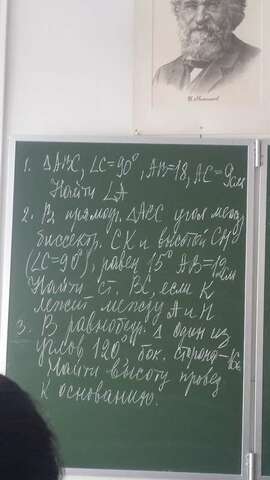 1. ΔABC, ∠C=90°, AB=18, AC=9см
Найти ∠A
2. В прямоуг. ΔABC угол между
биссектр. CK и высотой CH
(∠C=90°), равен 15° AB=12см
Найти ст. BC, если K
лежит между A и H
3. В равнобедр. Δ один из
углов 120°, бок. сторона=16см
Найти высоту провед
к основанию.